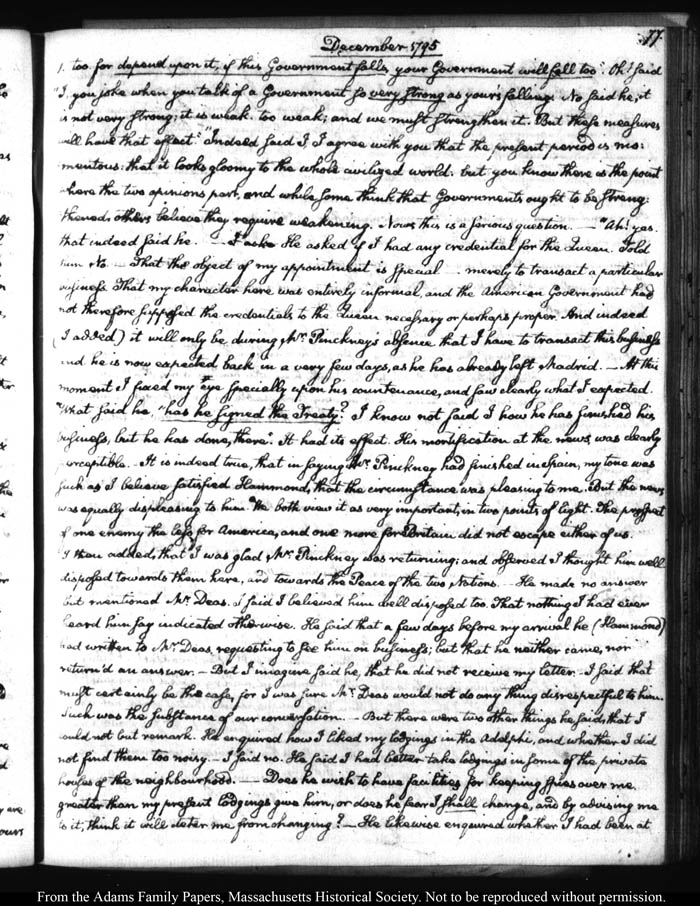 December 1795
77.
1. too for depend upon it, if this Government falls, your Government will fall too". Oh! said
"I, you joke when you talk of a Government so very strong as yours falling. No said he, it
is not very strong; it is weak. too weak; and we must strengthen it. But these measures
will have that effect." "Indeed said I, I agree with you that the present period is mo:
mentous: that it looks gloomy to the whole civilized world: but you know there is the point
where the two opinions part, and while some think that Governments ought to be streng:
thened, others believe they require weakening. Now, this is a serious question. — "Ah! yes.
that indeed said he. — I aske He asked if I had any credential for the Queen. Told
him No. — That the object of my appointment is special — merely to transact a particular
business. That my character here was entirely informal, and the American Government had
not therefore supposed the credentials to the Queen necessary or perhaps proper. And indeed
(I added) it will only be, during Mr. Pinckney's absence that I have to transact this business
and he is now expected back in a very few days, as he has already left Madrid. — At this
moment I fixed my eye specially upon his countenance, and saw clearly what I expected.
"What said he, "has he signed the Treaty"? I know not said I how he has finished his
business, but he has done, there". It had its effect. His mortification at the news was clearly
perceptible. — It is indeed true, that in saying Mr. Pinckney had finished in Spain, my tone was
such as I believe satisfied Hammond, that the circumstance was pleasing to me. But the news
was equally displeasing to him. We both view it as very important, in two points of light. The prospect
of one enemy the less for America, and one more for Britain did not escape either of us.
I then added, that I was glad Mr. Pinckney was returning; and observed I thought him well
disposed towards them here, and towards the Peace of the two Nations. — He made no answer
but mentioned Mr. Deas. I said I believed him well disposed too. That nothing I had ever
heard him say indicated otherwise. He said that a few days before my arrival he (Hammond)
had written to Mr. Deas, requesting to see him on business; but that he neither came, nor
return'd an answer. — But I imagine said he, that he did not receive my letter. — I said that
must certainly be the case, for I was sure Mr. Deas would not do any thing disrespectful to him.
Such was the substance of our conversation. — But there were two other things he said, that I
could not but remark. He enquired how I liked my lodgings in the Adelphi, and whether I did
not find them too noisy. — I said no. He said I had better take lodgings in some of the private
houses of the neighbourhood. — Does he wish to have facilities for keeping spies over me
greater than my present lodgings give him, or does he fear I shall change, and by advising me
to it, think it will deter me from changing? — He likewise enquired whether I had been at
From the Adams Family Papers, Massachusetts Historical Society. Not to be reproduced without permission.